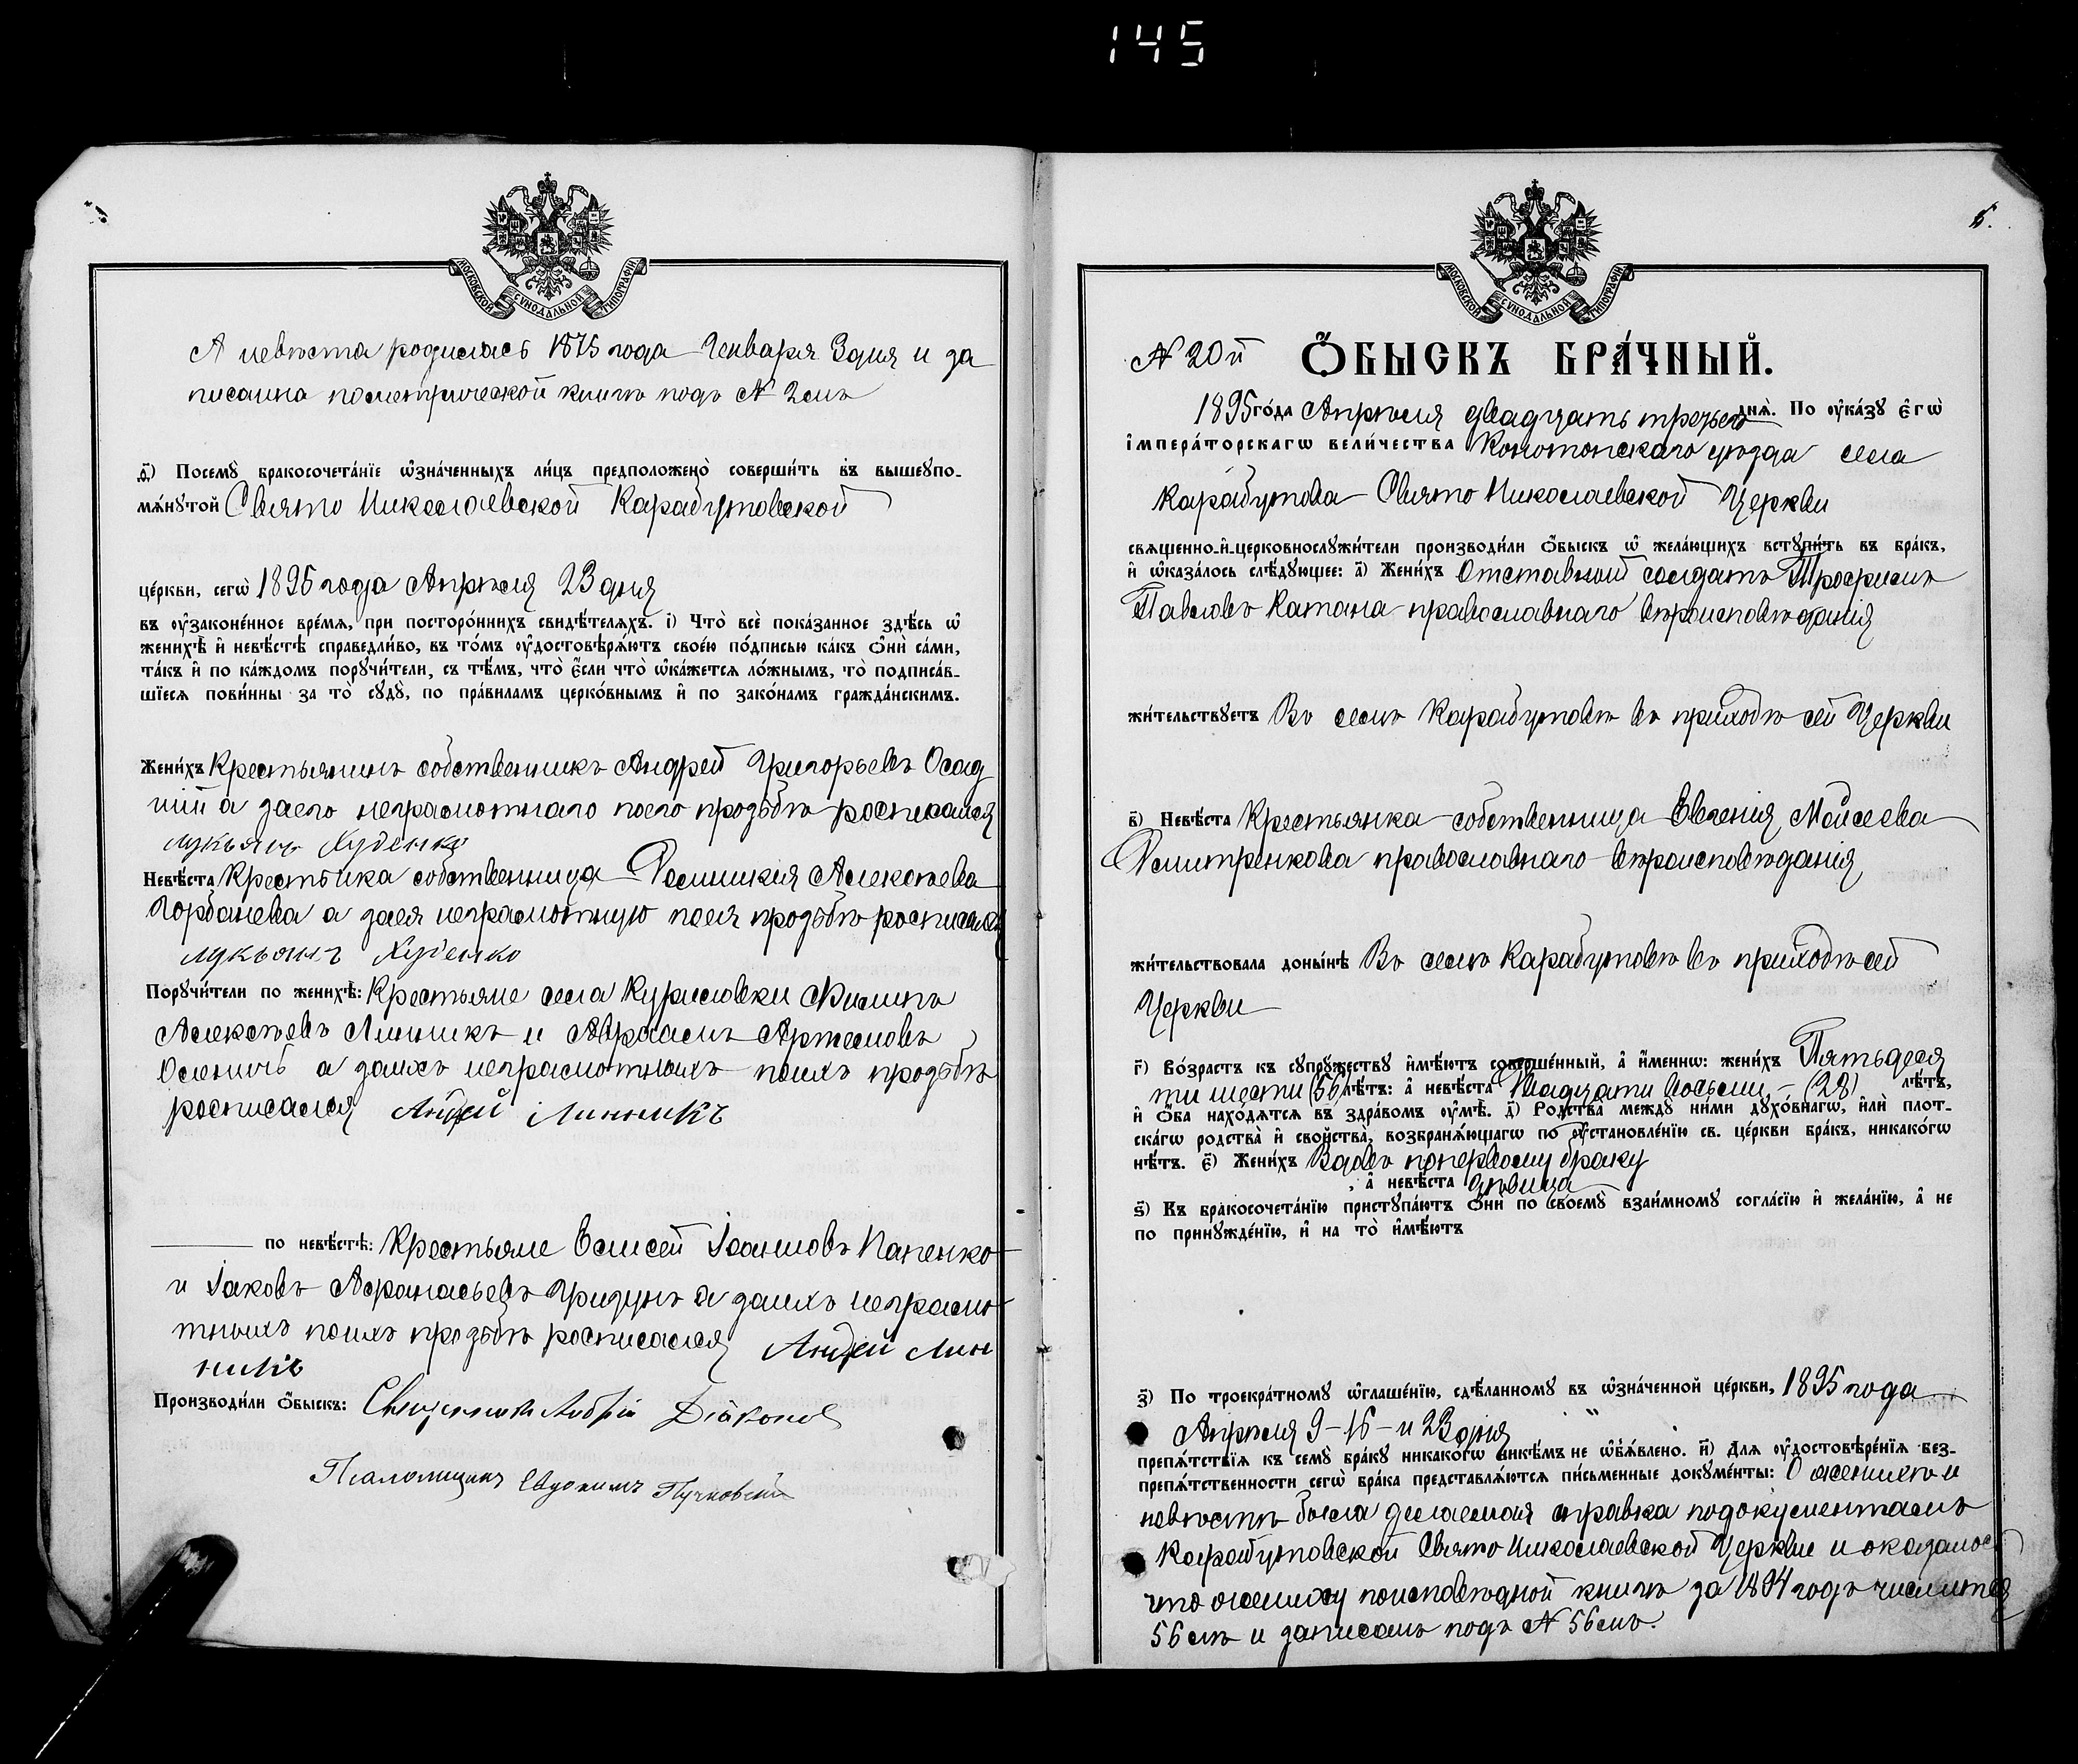 145
МОСКОВСКОЙ СУНОДАЛЬНОЙ ТИПОГРАФІИ
А невѣста родилась 1875 года Генваря 3 дня и за
писанна пометрической книгѣ подъ № 2 мъ
Посемꙋ̀ бракосочета́нїе ѡ҆зна́ченныхъ ли́цъ предположено̀ соверши́ть въ вышеꙋпо-
мѧ́нꙋтой Свято Николаевской Карабутовской
це́ркви, сегѡ̀ 1895 года Апрѣля 23 дня
въ ᲂу҆законе́нное вре́мѧ, при посторо́ннихъ свидѣ́телѧхъ. і) Что̀ всѐ пока́занное здѣ́сь ѡ҆
женихѣ̀ и҆ невѣ́стѣ справедли́во, въ то́мъ ᲂу҆достовѣрѧ́ютъ свое́ю по́дписью ка́къ ѻ҆нѝ са́ми,
та́къ и҆ по ка́ждомъ порꙋчи́тели, съ тѣ́мъ, что̀ є҆́сли что̀ ѡ҆ка́жетсѧ ло́жнымъ, то̀ подписа́в-
шїесѧ пови́нны за то̀ сꙋдꙋ̀, по пра́виламъ церко́внымъ и҆ по зако́намъ гражда́нскимъ.
Жени́хъ Крестьянинъ собственникъ Андрей Григорьевъ Осад
чій а заего неграмотнаго поего прозьбѣ росписался
Лукьянъ Худенко
Невѣ́ста Крестьнка собственница Домникія Алексѣева
Горбанева а заея неграмотную поея прозьбѣ росписался
Лукьянъ Худенко
Порꙋчи́тели по женихѣ̀: Крестьяне села Куриловки Филипъ
Алексѣевъ Линникъ и Авраамъ Артемовъ
а заихъ неграмотныхъ поихъ прозьбѣ
росписался Андрей Линникъ
по невѣ́стѣ: Крестьяне Елисей Іоанновъ Папенко
и Іаковъ Афанасьевъ Гридунъ а заихъ неграмо
тныхъ поихъ прозьбѣ росписался Андрей Лин
никъ
Производи́ли ѻ҆́быскъ: Священникъ Діаконов
Псаломщикъ Евдокимъ Пучковскій
МОСКОВСКОЙ СУНОДАЛЬНОЙ ТИПОГРАФІИ
№ 20й Ѻ҆́БЫСКЪ БРА́ЧНЫЙ.
1895 го́да Апрѣля двадцать третьего днѧ̀. По ᲂу҆ка́зꙋ є҆гѡ̀
і҆мпера́торскагѡ вели́чества Конотопскаго уѣзда села
Карабутова Свято Николаевской Церкви
свѧщенно-и҆-церковнослꙋжи́тели производи́ли ѻ҆́быскъ ѡ҆ жела́ющихъ встꙋпи́ть въ бра́къ,
и҆ ѡ҆каза́лось слѣ́дꙋющее: а҃) Жени́хъ Отставной солдатъ Трофимъ
Павловъ Катана православнаго вѣроисповѣданія
жи́тельствꙋетъ Въ селѣ Карабутовѣ въ приходѣ сей Церкви
в҃) Невѣ́ста Крестьянка собственница Евгенія Мойсеева
Дмитренкова православнаго вѣроисповѣданія
жи́тельствовала доны́нѣ Въ селѣ Карабутовѣ въ приходѣ сей
Церкви
г҃) Во́зрастъ къ сꙋпрꙋ́жествꙋ и҆мѣ́ютъ соверше́нный, а҆ и҆́меннѡ: жени́хъ Пятьдеся
ти шести (56) лѣ́тъ: а҆ невѣ́ста Двадцати восьми – (28) лѣ́тъ,
и҆ ѻ҆́ба нахо́дѧтсѧ въ здра́вомъ ᲂу҆мѣ̀. д҃) Родства̀ междꙋ̀ ни́ми дꙋхо́внагѡ, и҆лѝ плот-
ска́гѡ родства̀ и҆ свойства̀, возбранѧ́ющагѡ по ᲂу҆становле́нїю св. це́ркви бра́къ, никако́гѡ
нѣ́тъ. є҃) Жени́хъ Вдовъ поперьвому браку
, а҆ невѣ́ста дѣвица
ѕ҃) Къ бракосочета́нїю пристꙋпа́ютъ ѻ҆нѝ по своемꙋ̀ взаи́мномꙋ согла́сїю и҆ жела́нїю, а҆ не
по принꙋжде́нїю, и҆ на то̀ и҆мѣ́ютъ
з҃) По троекра́тномꙋ ѡ҆глаше́нїю, сдѣ́ланномꙋ въ ѡ҆зна́ченной це́ркви, 1895 года
Апрѣля 9 – 16 – и 23 дня
препѧ́тствїѧ къ семꙋ̀ бра́кꙋ никако́гѡ никѣ́мъ не ѡ҆б̾ѧ́влено. и҃) Длѧ ᲂу҆достовѣре́нїѧ без-
препѧ́тственности сегѡ̀ бра́ка представлѧ́ютсѧ пи́сьменные докꙋме́нты: О женихѣ и
невѣстѣ была делаемая справка подокументамъ
Карабутовской Свято Николаевской Церкви и оказалось
что жениху поисповѣдной книгѣ за 1894 годъ числится
56 лѣ и записанъ подъ № 56 мъ.